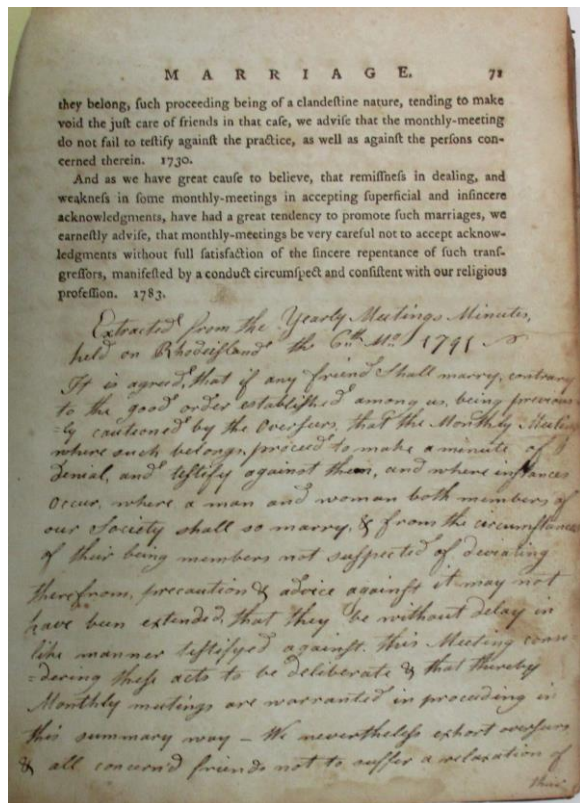 MARRIAGE. 71
they belong, ſuch proceeding being of a clandeſtine nature, tending to make
void the juſt care of friends in that caſe, we adviſe that the monthly-meeting
do not fail to teſtify againſt the practice, as well as againſt the perſons con-
cerned therein. 1730.
And as we have great cauſe to believe, that remiſſneſs in dealing, and
weakneſs in ſome monthly-meetings in accepting ſuperficial and inſincere
acknowledgments, have had a great tendency to promote ſuch marriages, we
earneſtly adviſe, that monthly-meetings be very careful not to accept acknow-
ledgments without full ſatisfaction of the ſincere repentance of ſuch tranſ-
greſſors, manifeſted by a conduct circumſpect and conſiſtent with our religious
profeſſion. 1783.
Extracted from the Yearly Meetings Minutes,
held on Rhodeiſland th 6th Mo 1791
It is agreed, that if any friend Shall marry, contrary
to the good order eſtabliſhed among us, being previous
=ly cautioned by the Overſeers, that the Monthly Meeting
where such belongs, proceed to make a minute of
Denial, and teſtify against them, and where inſtances
Occur, where a man and woman both members of
our Society shall so marry, & from the circumſtance
of their being members not suſpected of deviating
therefrom, precaution & advice againſt it may not
have been extended, that they be without delay in
like manner teſtifyed againſt, this Meeting conſi
=dering theſe acts to be deliberate & that thereby
Monthly meetings are warranted in proceeding in
this summary way – We nevertheleſs exhort overſeers
& all concern'd friends not to suffer a relaxation of
their